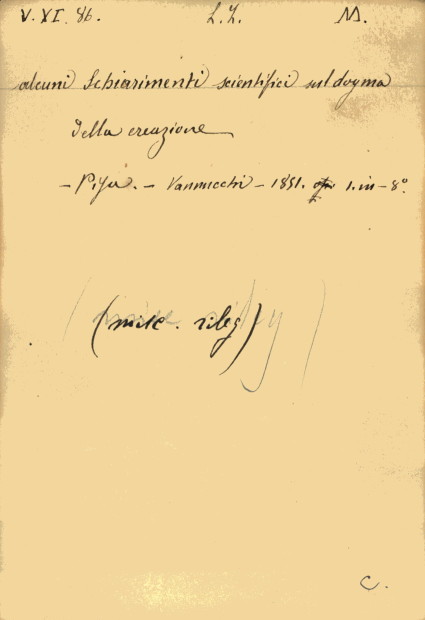 V. XI. 86. L. L. M.
alcuni Schiarimenti scientifici sul dogma
della creazione
- Pisa. - Vannucchi - 1851. 1. in - 8º.
(misc. rileg)
C.